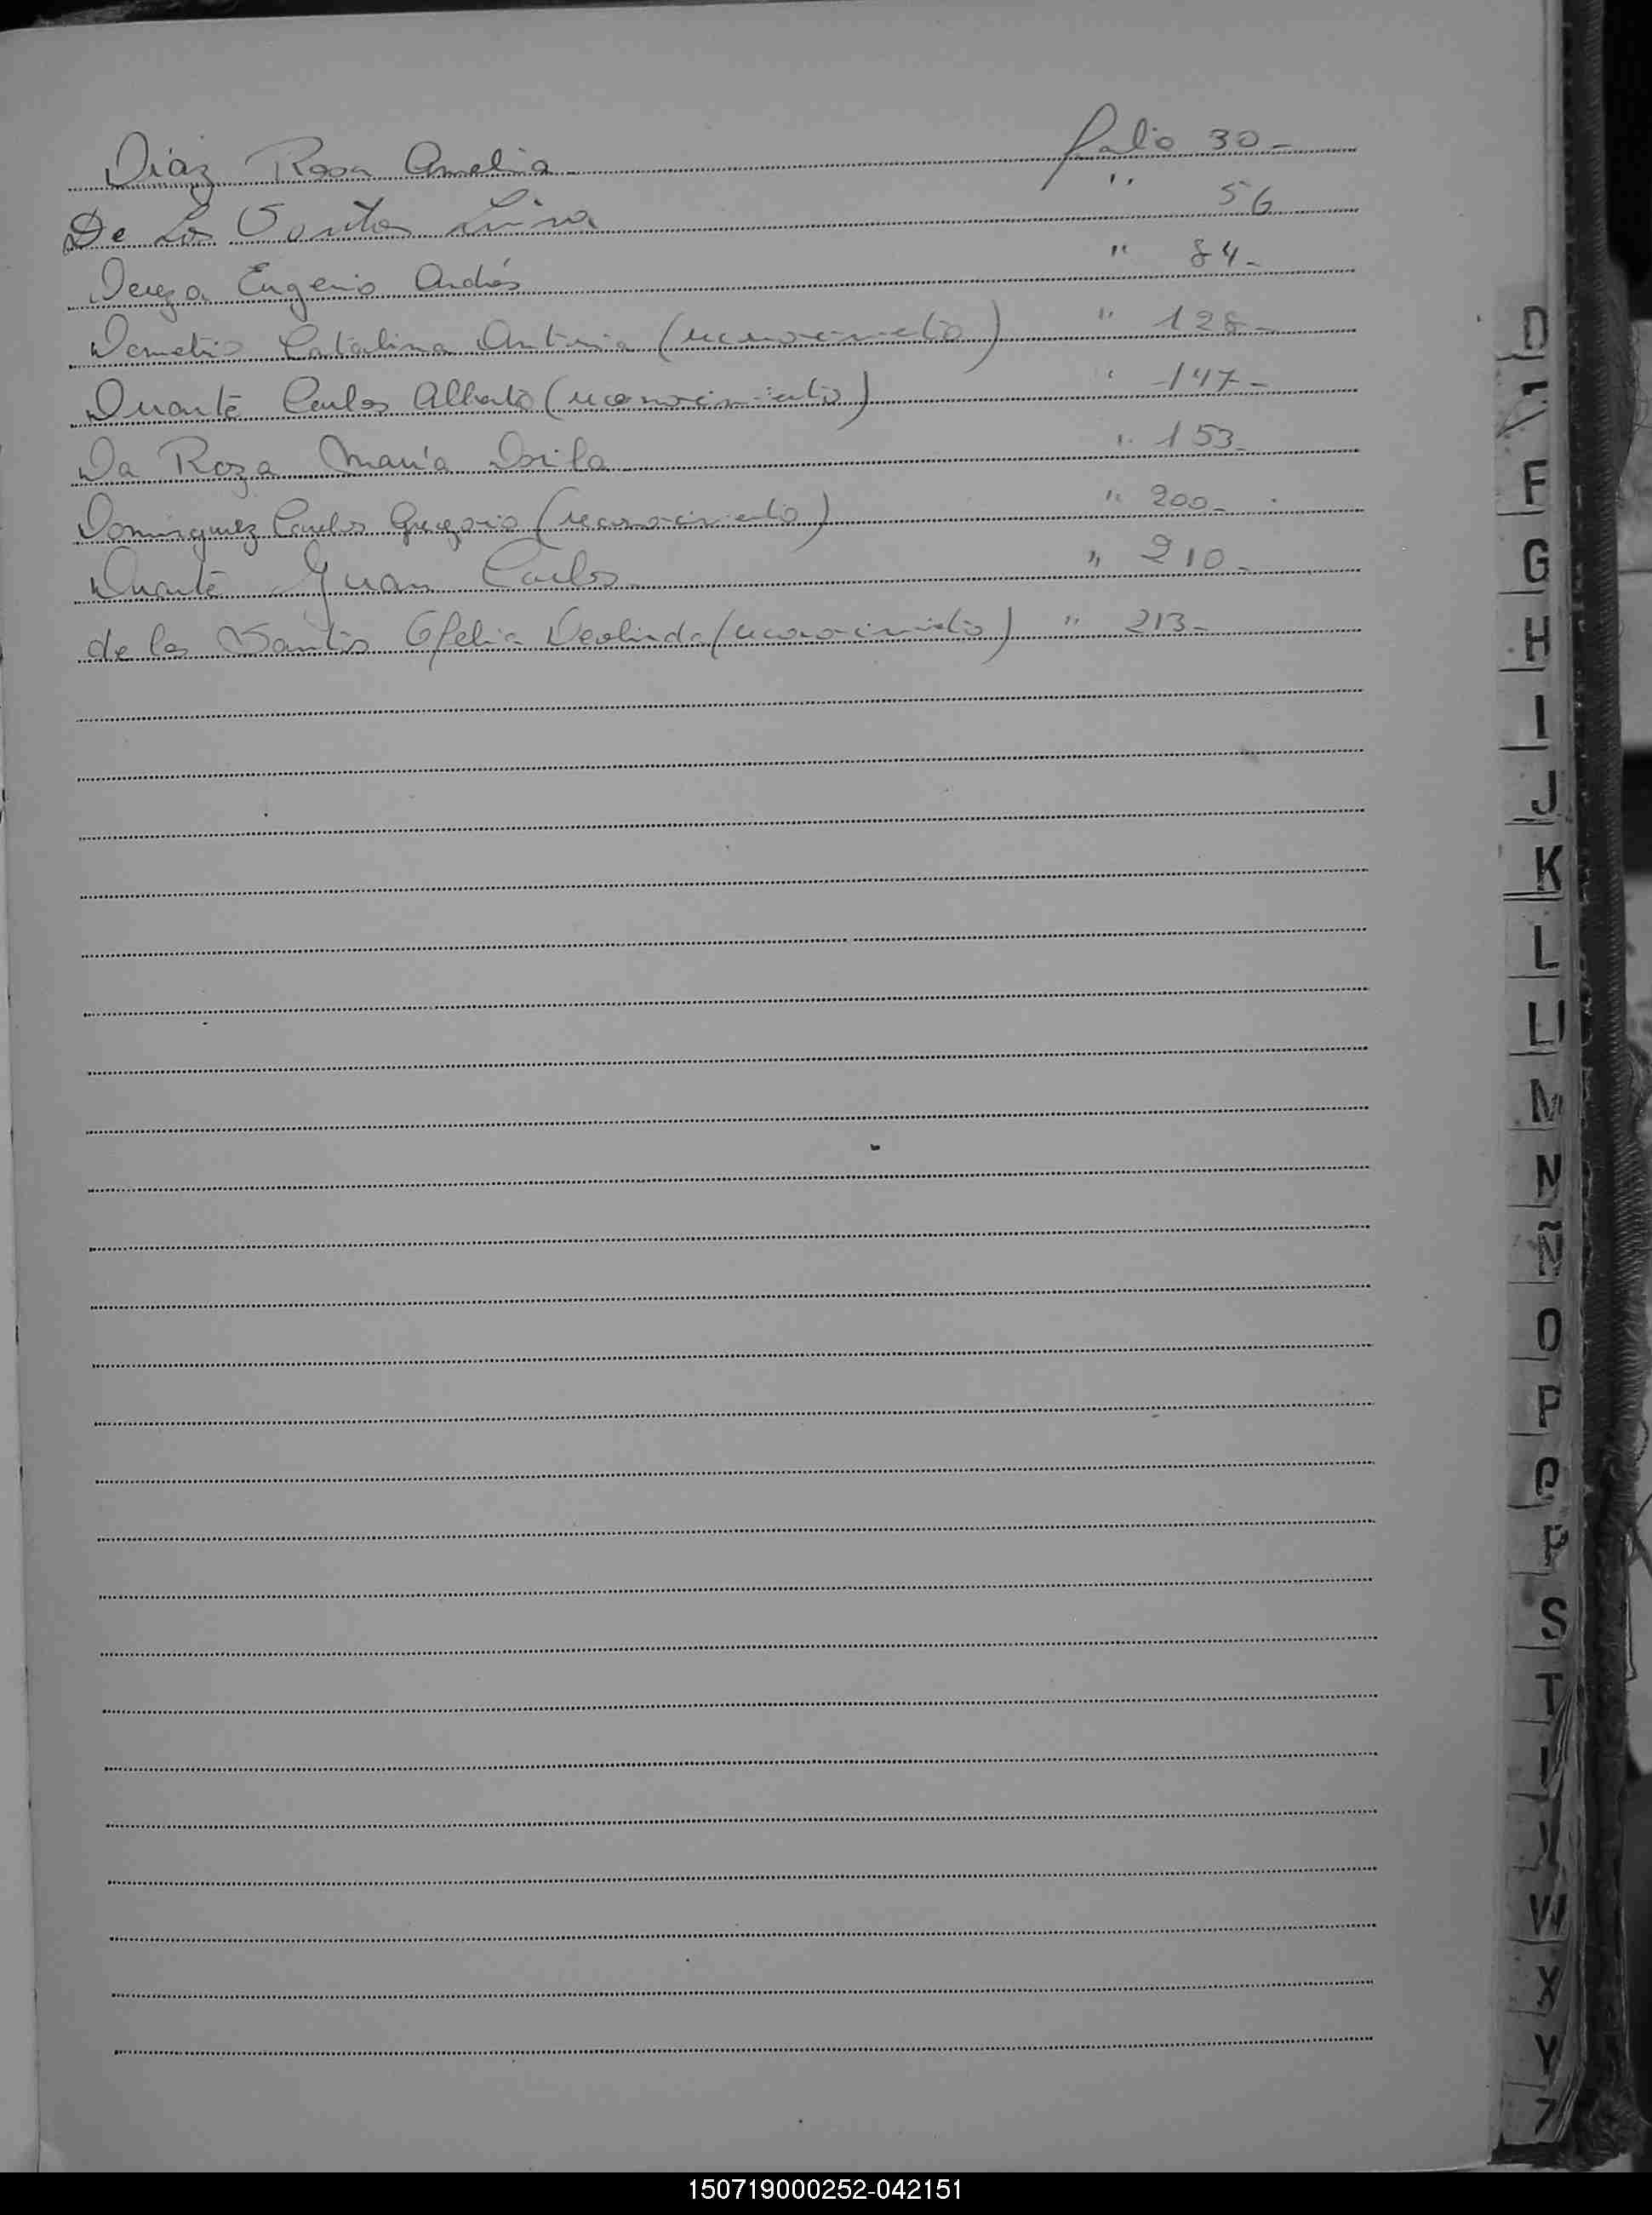 Diaz Rosa Amelia folio 30-
De Los Santos Luisa '' 56
Dejeza Eugenio Andrés " 84-
Demetrio Catalina Antonia (reconocimiento) " 128-
Duarte Carlos Alberto (reconocimiento) " 147-
Da Roza María " 153-
Dominguez Carlos Gregorio (reconocimiento) " 200-
Duarte Juan Carlos " 210-
de los Santos Ofelia Deolinda (reconocimiento) " 213-
D
F
G
H
I
J
K
L
LL
M
N
Ñ
O
P
Q
R
S
T
U
V
W
X
Y
Z
150719000252-042151